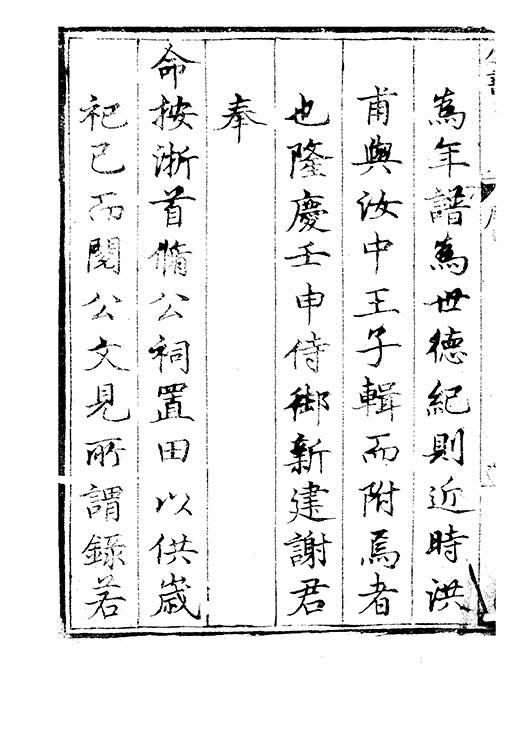 為年譜為世德紀則近時洪
甫與汝中王子輯而附焉者
也隆慶壬申侍御新建謝君
奉
命按浙首脩公祠置田以供歲
祀已而閱公文見所謂錄若